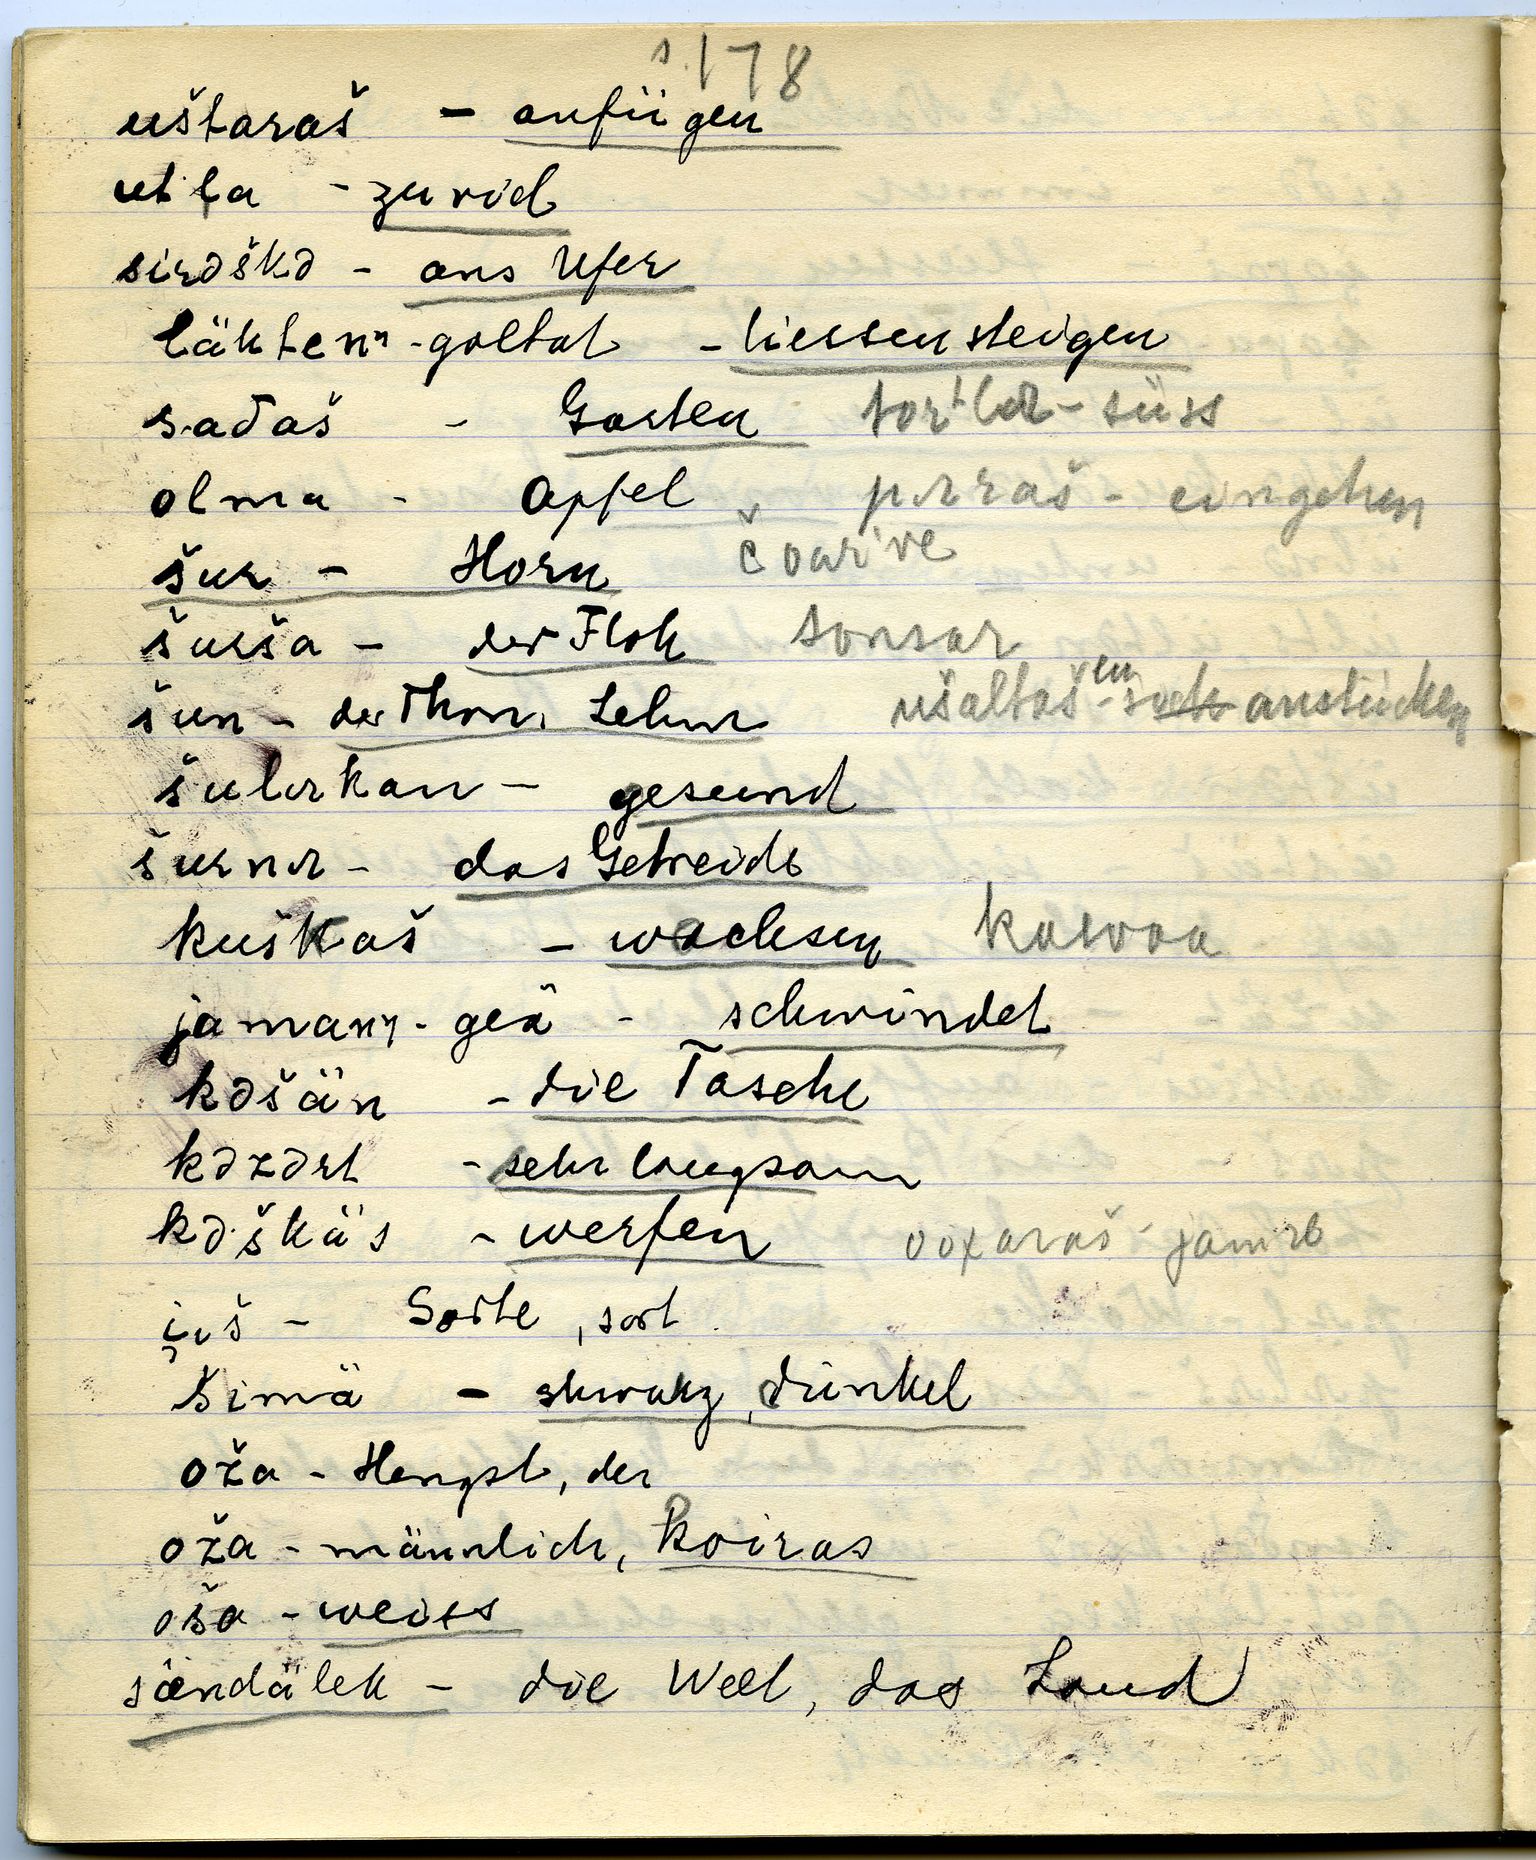 s. 178
uštaraš - anfügen
utla - zuviel
sirəškə - ans Ufer
läktenⁿ-goltat - liessen steigen
sadaš - Garten tor'lər - süss
olma - Apfel pəraš - eingehen
šur - Horn čvar've
šurša - der Floh sonsar
šun - der Thon, Lehm ušaltaš - anstücken
šulərkan - gesund
šurnə - das Getreide
kuškaš - wachsen kawaa
jamanŋ-geä - schwindet
kəšän - die Tasche
kəzərt - sehr langsam
kəškäs - werfen
iš - Sorte, sort
šimä - shwarz, dunkel
oža - Hengst, der
oža - männlich, koiras
oša - weiss
sändälek - die Welt, das Land